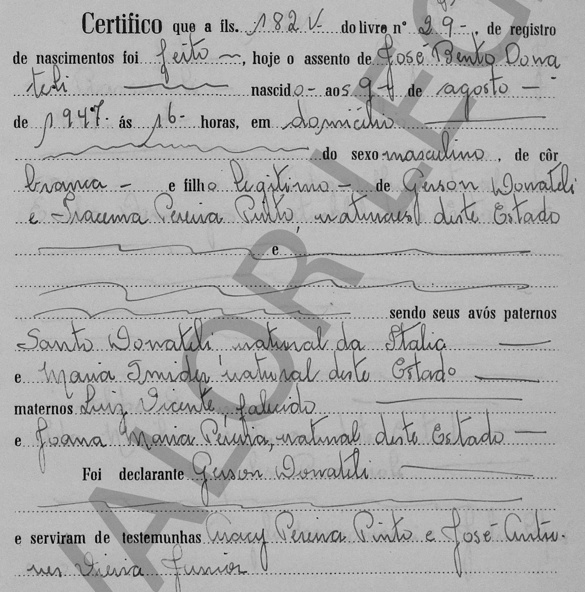 Certifico que a fls. 182 V. do livro nº 29-, de registro
de nascimentos foi feito, hoje o assento de José Bento Dona
teli nascido- aos 9- de agosto -
de 1947. ás 16- horas, em domicilio
do sexo masculino, de côr
branca - e filho legitimo - de Gerson Donateli
e Iracema Pereira Pinto, naturaes deste Estado
e
sendo seus avós paternos
Santo Donateli natural da Italia
e Maria natural deste Estado
maternos Luiz Vicente, falecido
e Joana Maria Pereira, natural deste Estado
Foi declarante Gerson Donateli
e serviram de testemunhas Aracy Pereira Pinto e José Antu-
nes Vieira Junior
VALOR LEG